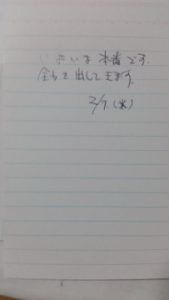 いよいよ本番です。
全力を出してきます。
2/7 (水)